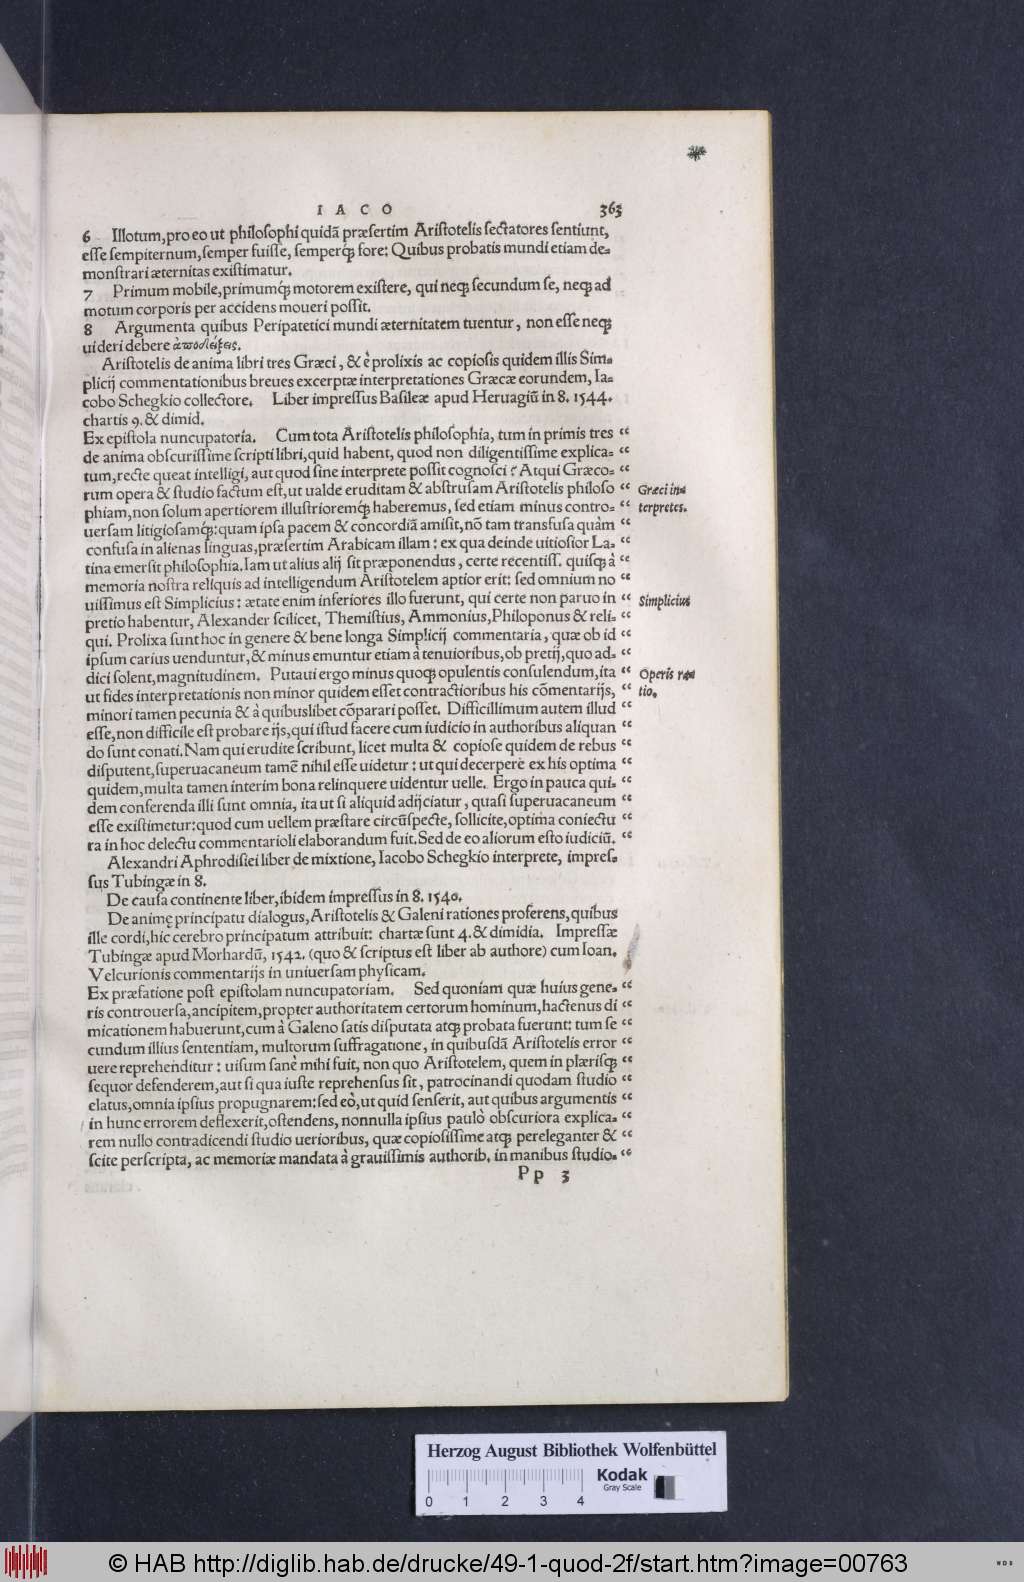 I A C O 363
6 Illotum,pro eo ut philosophi quidã præsertim Aristotelis sectatores sentiunt,
esse sempiternum,semper fuisse, semperq́; fore: Quibus probatis mundi etiam de-
monstrari æternitas existimatur.
7 Primum mobile,primumq́; motorem existere, qui neq; secundum se, neq; ad
motum corporis per accidens moueri possit.
8 Argumenta quibus Peripatetici mundi æternitatem tuentur, non esse neq;
uideri debere ἀποδείξεις.
Aristotelis de anima libri tres Græci, & è prolixis ac copiosis quidem illis Sim-
plicij commentationibus breues excerptæ interpretationes Græcæ eorundem, Ia-
cobo Schegkio collectore. Liber impressus Basileæ apud Heruagiũ in 8. 1544.
chartis 9. & dimid.
Ex epistola nuncupatoria. Cum tota Aristotelis philosophia, tum in primis tres “
de anima obscurissime scripti libri,quid habent, quod non diligentissime explica- “
tum,recte queat intelligi, aut quod sine interprete possit cognosci? Atqui Græco- “
rum opera & studio factum est,ut ualde eruditam & abstrusam Aristotelis philoso “ Græci in-
phiam,non solum apertiorem illustrioremq́; haberemus, sed etiam minus contro- “ terpretes.
uersam litigiosamq́;:quam ipsa pacem & concordiã amisit,nõ tam transfusa quàm “
confusa in alienas linguas,præsertim Arabicam illam: ex qua deinde uitiosior La- “
tina emersit philosophia.Iam ut alius alij sit præponendus, certe recentiss. quisq; à “
memoria nostra reliquis ad intelligendum Aristotelem aptior erit: sed omnium no “
uissimus est Simplicius: ætate enim inferiores illo fuerunt, qui certe non paruo in “ Simplicius
pretio habentur, Alexander scilicet, Themistius, Ammonius,Philoponus & reli- “
qui. Prolixa sunt hoc in genere & bene longa Simplicij commentaria, quæ ob id “
ipsum carius uenduntur,& minus emuntur etiam à tenuioribus,ob pretij,quo ad- “
dici solent,magnitudinem. Putaui ergo minus quoq; opulentis consulendum,ita “ Operis ra-
ut fides interpretationis non minor quidem esset contractioribus his cõmentarijs, “ tio.
minori tamen pecunia & à quibuslibet cõparari posset. Difficillimum autem illud “
esse,non difficile est probare ijs,qui istud facere cum iudicio in authoribus aliquan “
do sunt conati.Nam qui erudite scribunt, licet multa & copiose quidem de rebus “
disputent,superuacaneum tamẽ nihil esse uidetur: ut qui decerpere ex his optima “
quidem,multa tamen interim bona relinquere uidentur uelle. Ergo in pauca qui- “
dem conferenda illi sunt omnia, ita ut si aliquid adijciatur, quasi superuacaneum “
esse existimetur:quod cum uellem præstare circũspecte, sollicite,optima coniectu “
ra in hoc delectu commentarioli elaborandum fuit.Sed de eo aliorum esto iudiciũ. “
Alexandri Aphrodisiei liber de mixtione, Iacobo Schegkio interprete, impres-
sus Tubingæ in 8.
De causa continente liber,ibidem impressus in 8. 1540.
De animę principatu dialogus,Aristotelis & Galeni rationes proferens,quibus
ille cordi,hic cerebro principatum attribuit: chartæ sunt 4.& dimidia. Impressæ
Tubingæ apud Morhardũ, 1542. (quo & scriptus est liber ab authore) cum Ioan.
Velcurionis commentarijs in uniuersam physicam.
Ex præfatione post epistolam nuncupatoriam. Sed quoniam quæ huius gene- “
ris controuersa,ancipitem,propter authoritatem certorum hominum,hactenus di “
micationem habuerunt,cum à Galeno satis disputata atq; probata fuerunt: tum se “
cundum illius sententiam, multorum suffragatione, in quibusdã Aristotelis error “
uere reprehenditur: uisum sanè mihi fuit, non quo Aristotelem, quem in plærisq; “
sequor defenderem,aut si qua iuste reprehensus sit, patrocinandi quodam studio “
elatus,omnia ipsius propugnarem:sed eò,ut quid senserit, aut quibus argumentis “
in hunc errorem deflexerit,ostendens, nonnulla ipsius paulò obscuriora explica- “
rem nullo contradicendi studio uerioribus, quæ copiosissime atq; pereleganter & “
scite perscripta, ac memoriæ mandata à grauissimis authorib. in manibus studio- “
P p 3
Herzog August Bibliothek Wolfenbüttel
0 1 2 3 4
Kodak
Gray Scale
© HAB http://diglib.hab.de/drucke/49-1-quod-2f/start.htm?image=00763
WDB